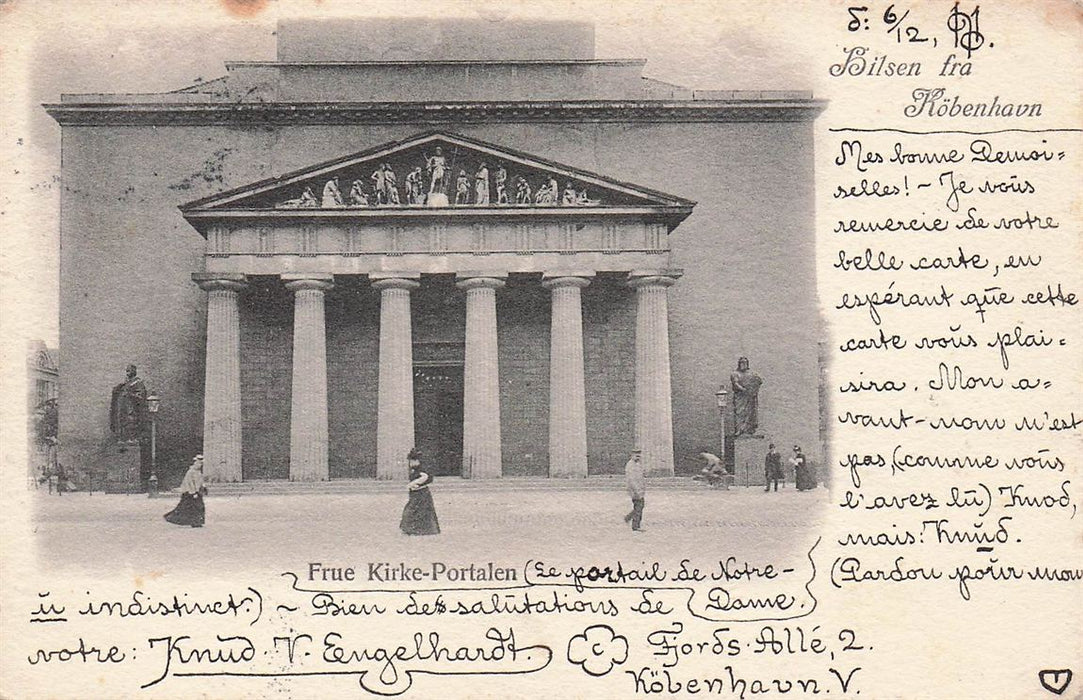 d: 6/12,
Hilsen fra
Köbenhavn
Mes bonne Demoi=
selles! - Je voũs
remercie de votre
belle carte, en
espérant que cette
carte voũs plai=
sira. Mon a=
vant-nom n'est
pas, (comme voũs
l'avez lũ) Knod,
mais: Knũd.
(Pardou poũr mon
Frue Kirke-Portalen (Le portail de Notre-
Dame.)
ũ indistinct.) ~ Bien des salũtations de
votre: Knũd. V. Engelhardt.
Fjords Allé, 2.
Köbenhavn. V.